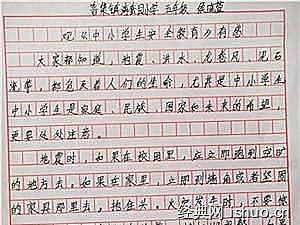 吉巷镇海青园小学 五年级
观《中小学生安全教育》有感
大家都知道，地震、洪水、龙卷风、泥石
流等，都危害着人们的生命，尤其是中小学生
中小学生是家庭、民族、国家和未来的希望，
更要处处注意。
地震时，如果在校园里，应立即跑到空旷
的地方去。如果在家里，立即到墙角或者坚固
的家具那里去，抱住头。火灾发生时，不要惊
经典网yishuo.cn